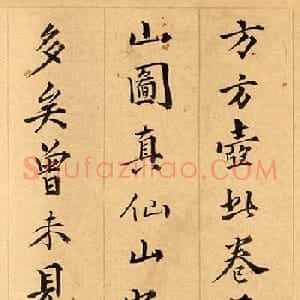 方方壺此卷
山圖真仙山
多矣曾未見
Shufazidiao.com